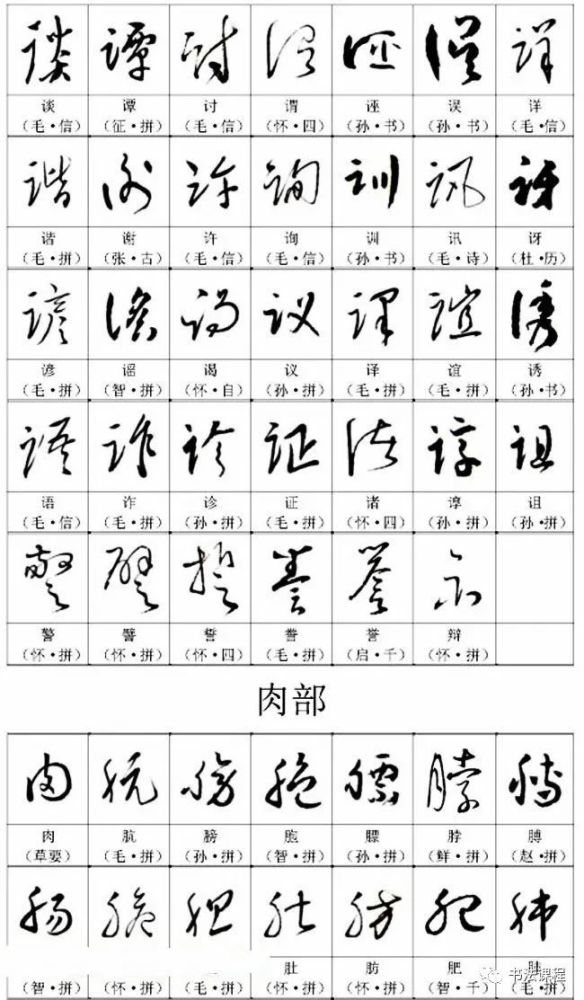 谈 谭 讨 谓 诬 误 详
（毛·信） （征·拼） （毛·信） （怀·四） （孙·书） （孙·书） （毛·信）
谐 谢 许 询 训 讯 讶
（毛·拼） （张·古） （毛·信） （毛·信） （孙·书） （毛·诗） （杜·历）
谚 谣 谒 议 译 谊 诱
（毛·拼） （智·拼） （怀·自） （孙·拼） （毛·拼） （毛·拼） （孙·书）
语 诈 诊 证 诸 谆 诅
（毛·信） （毛·拼） （孙·拼） （毛·拼） （怀·四） （孙·拼） （孙·拼）
警 譬 誓 誊 誉 辩
（怀·拼） （怀·拼） （怀·四） （毛·拼） （启·千） （怀·拼）
肉部
肉 肮 膀 胞 膘 脖 膊
（草要） （毛·拼） （孙·拼） （智·拼） （孙·拼） （鲜·拼） （赵·拼）
肚 肪 肥 肺
（智·拼） （怀·拼） （毛·拼） （怀·拼） （怀·拼） （智·千） （毛·拼）
书法课程